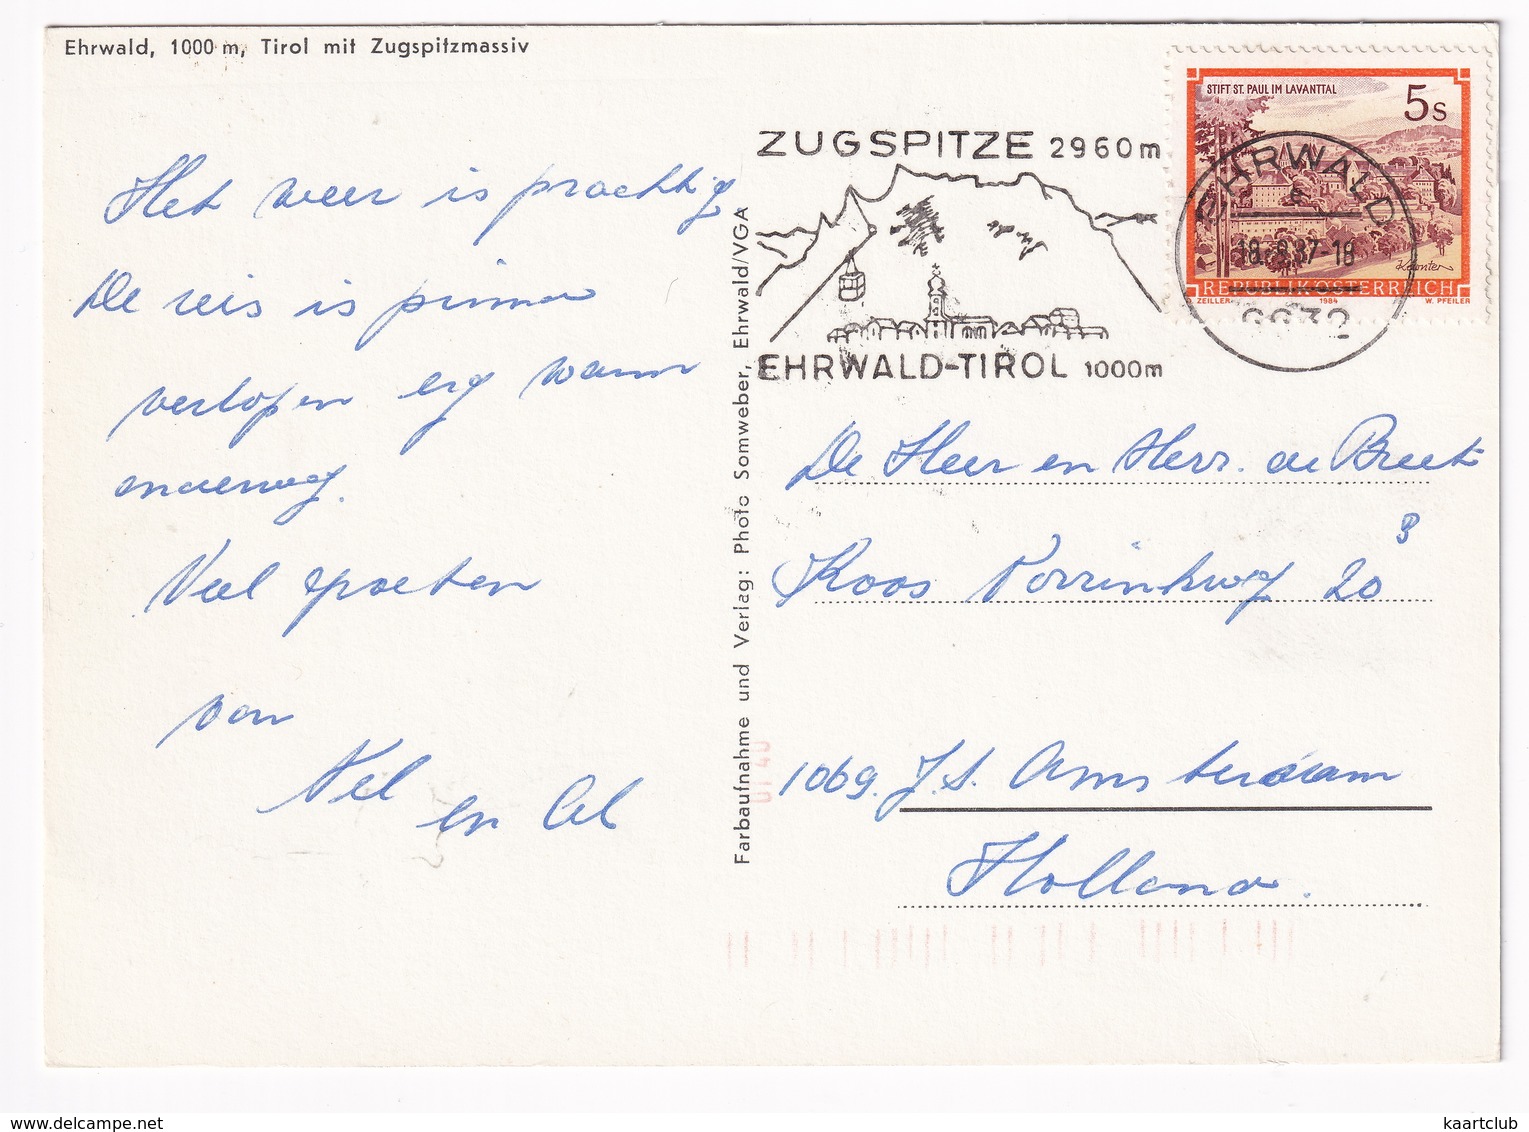 Ehrwald, 1000 m, Tirol mit Zugspitzmassiv
Het weer is prachtig
De reis is prima
verlopen erg warm
onderweg.
Veel groeten
van
Nel
en Al
Farbaufnahme und Verlag: Photo Somweber, Ehrwald/VGA
ZUGSPITZE 2960m
EHRWALD-TIROL 1000m
STIFT ST. PAUL IM LAVANTTAL
5s
REPUBLIK ÖSTERREICH
O. ZEILLER 1984 W. PFEILER
EHRWALD
18.-8.87-18
6632
De Heer en Herr. de Breet
Koos Vorrinkweg 20 3
1069. J.S. Amsterdam
Holland.
kaartclub